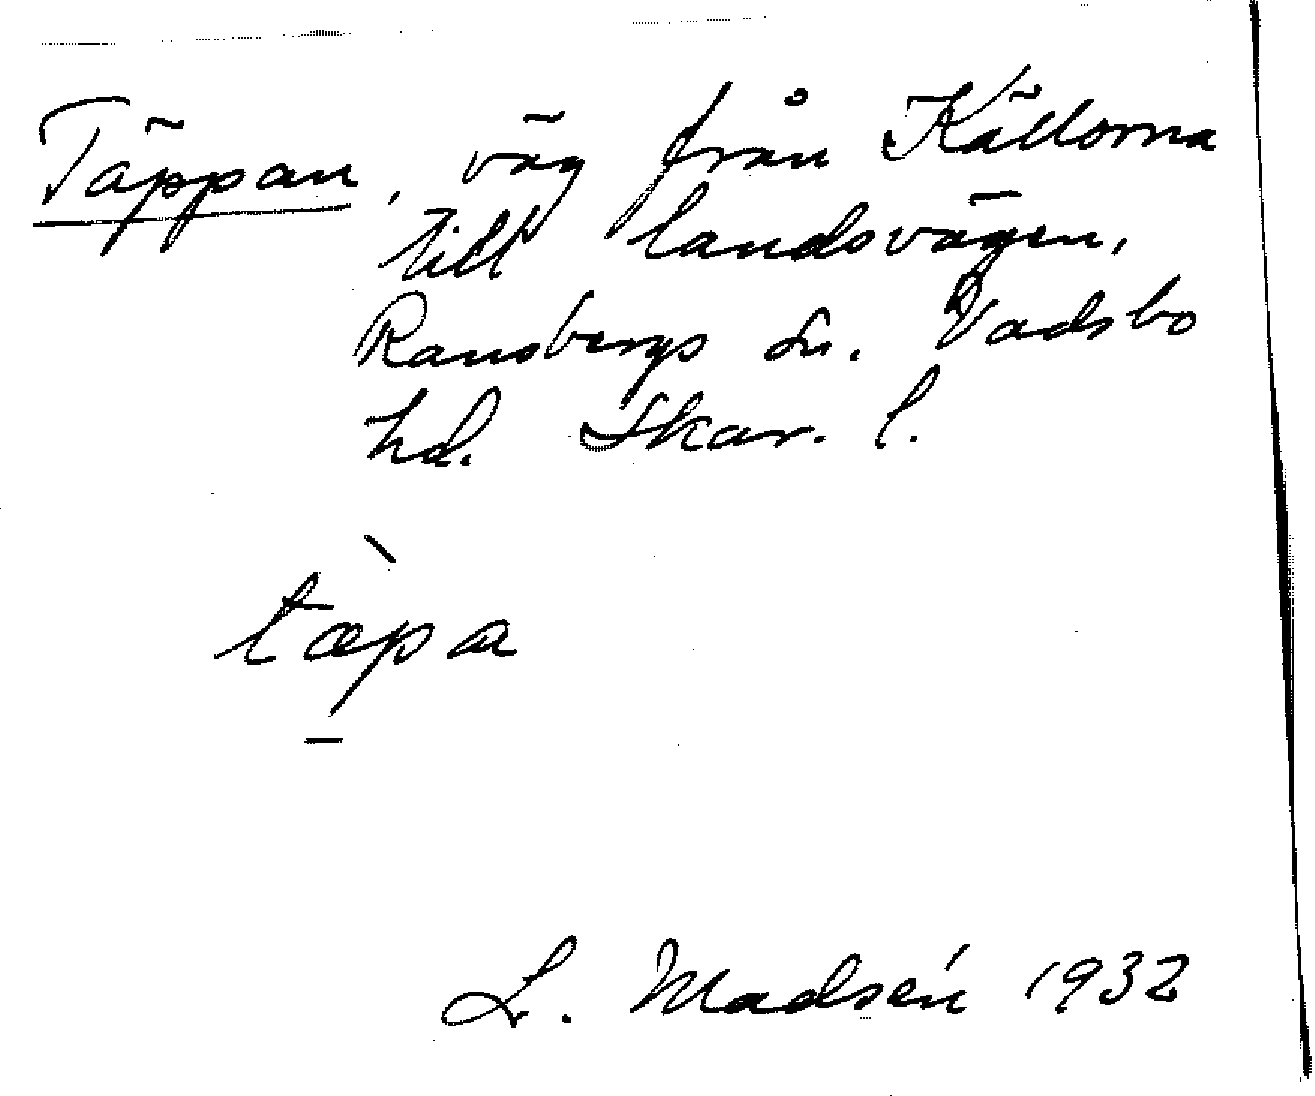 Täppan, väg från Källorna
till landsvägen,
Ransbergs sn. Vadsbo
hd. Skar. l.
tæ̀p̱a
L. Madsén 1932